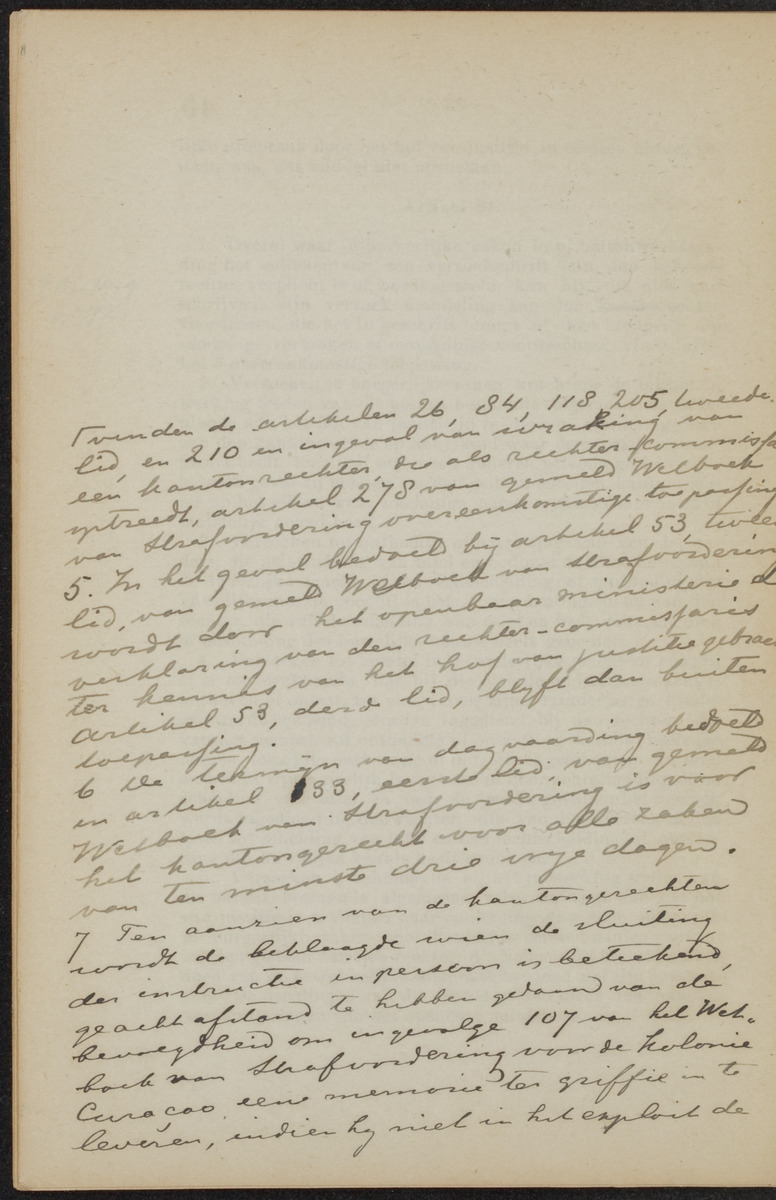 vinden de artikelen 26, 84, 118, 205, tweede
lid, en 210 en ingeval van wraking van
een kantonrechter, die als rechter-commissa
optreedt, artikel 278 van gemeld Wetboek
van Strafvordering overeenkomstige toepassing
5. In het geval bedoeld bij artikel 53, twee
lid, van gemeld Wetboek van Strafvorderin
wordt door het openbaar ministerie d
verklaring van den rechter-commissaris
ter kennis van het hof van justitie gebrac
Artikel 53, derde lid, blyft dan buiten
toepassing.
6 De termijn van dagvaarding bedoeld
in artikel 133, eerste lid, van gemeld
Wetboek van Strafvordering is voor
het kantongerecht voor alle zaken
van ten minste drie vrije dagen.
7 Ten aanzien van de kantongerechten
wordt de beklaagde wien de sluiting
der instructie in persoon is beteekend,
geacht afstand te hebben gedaan van de
bevoegdheid om ingevolge 107 van het Wet-
boek van Strafvordering voor de Kolonie
Curaçao eene memorie ter griffie in te
leveren, indien hy niet in het exploit de